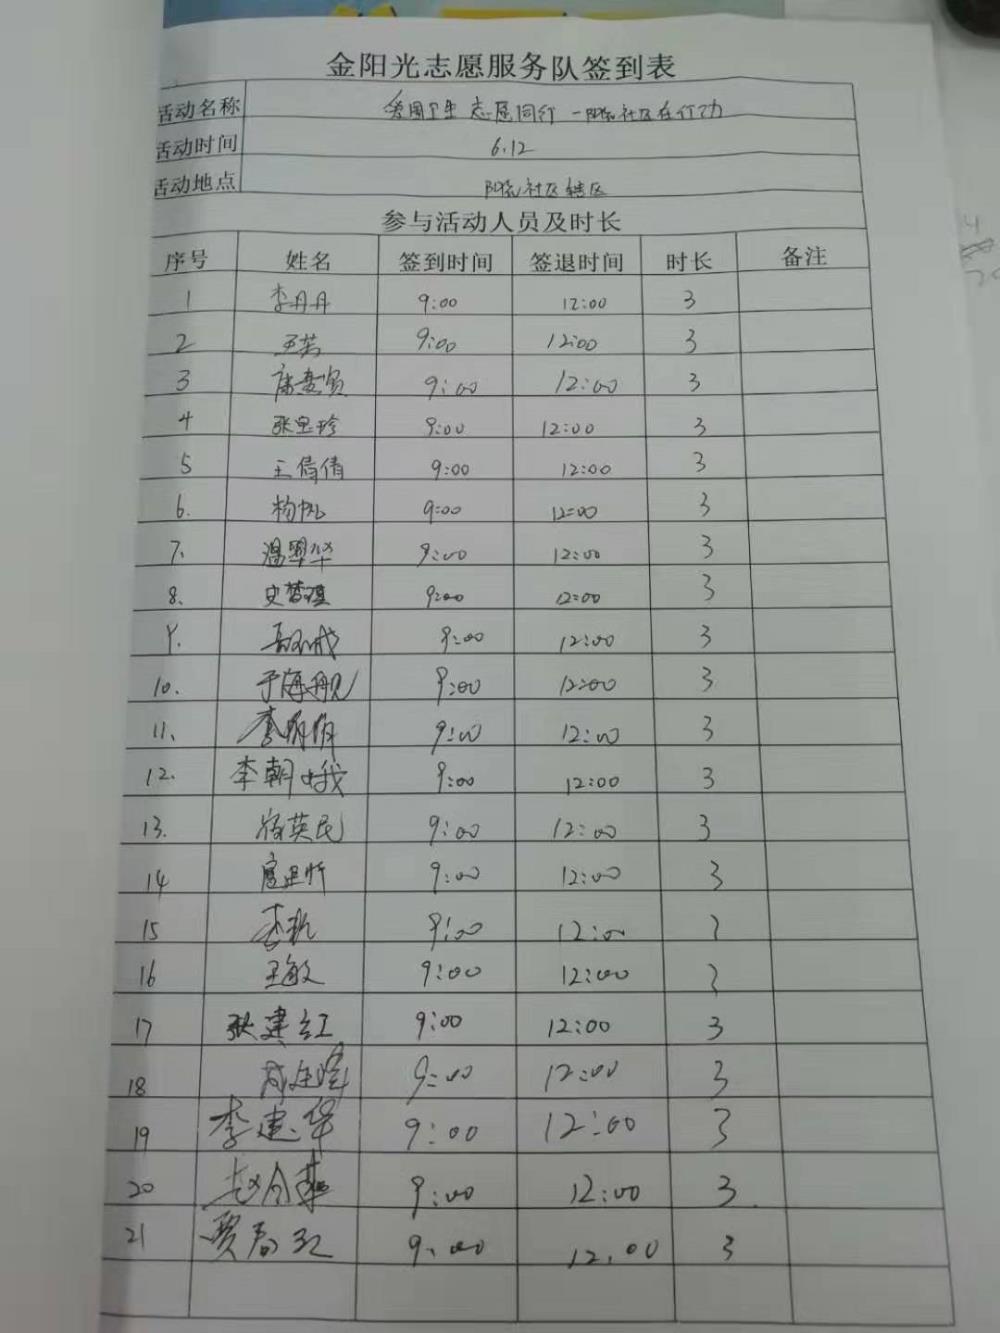 金阳光志愿服务队签到表
活动名称 爱国卫生 志愿同行 一阳光社区在行动
活动时间 6.12
活动地点 社区辖区
参与活动人员及时长
序号 姓名 签到时间 签退时间 时长 备注
1 李丹丹 9:00 12:00 3
2 王芳 9:00 12:00 3
3 9:00 12:00 3
4 张宝珍 9:00 12:00 3
5 王倩倩 9:00 12:00 3
6. 杨帆 9:00 12:00 3
7. 温翠华 9:00 12:00 3
8. 史 9:00 12:00 3
9. 9:00 12:00 3
10. 于海舰 9:00 12:00 3
11. 李 9:00 12:00 3
12. 李朝娥 9:00 12:00 3
13. 英民 9:00 12:00 3
14 9:00 12:00 3
15 李 9:00 12:00 3
16 王敏 9:00 12:00 3
17 耿建红 9:00 12:00 3
18 9:00 12:00 3
19 李建华 9:00 12:00 3
20 赵 9:00 12:00 3
21 贾 9:00 12:00 3